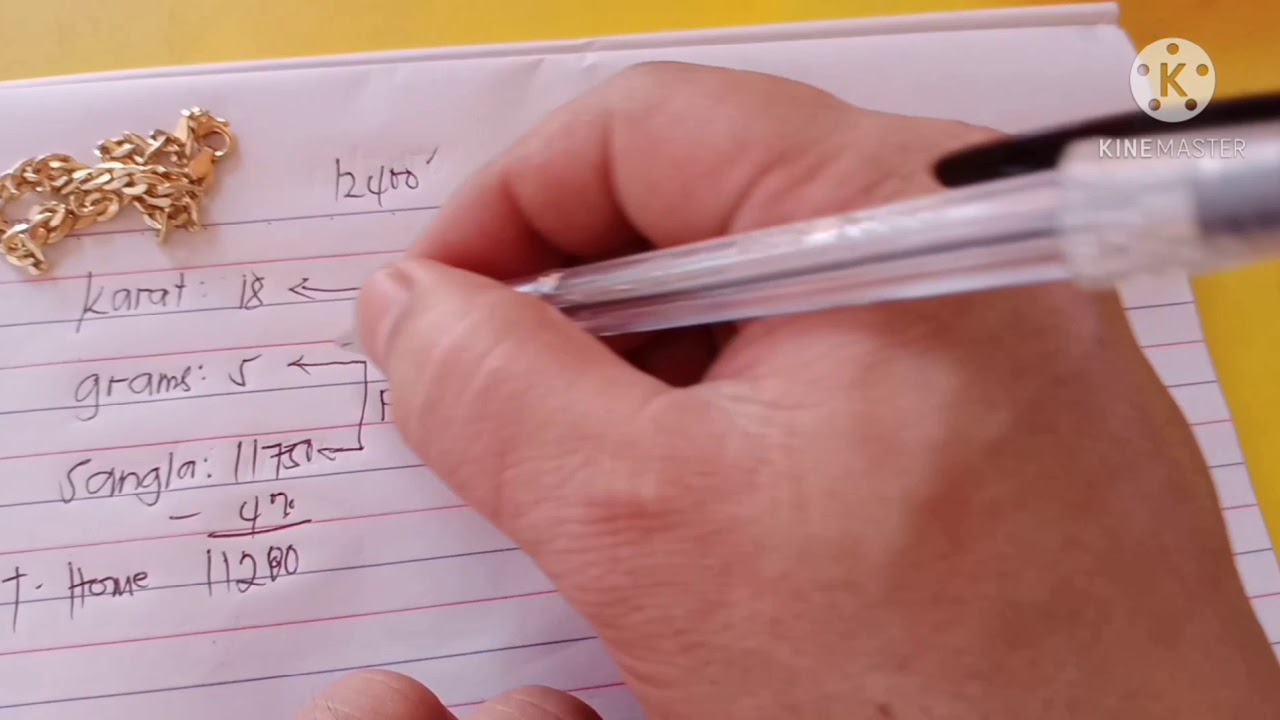 K
KINEMASTER
12400
karat: 18
grams: 5
Sangla: 11750
- 4%
T. Home 11280